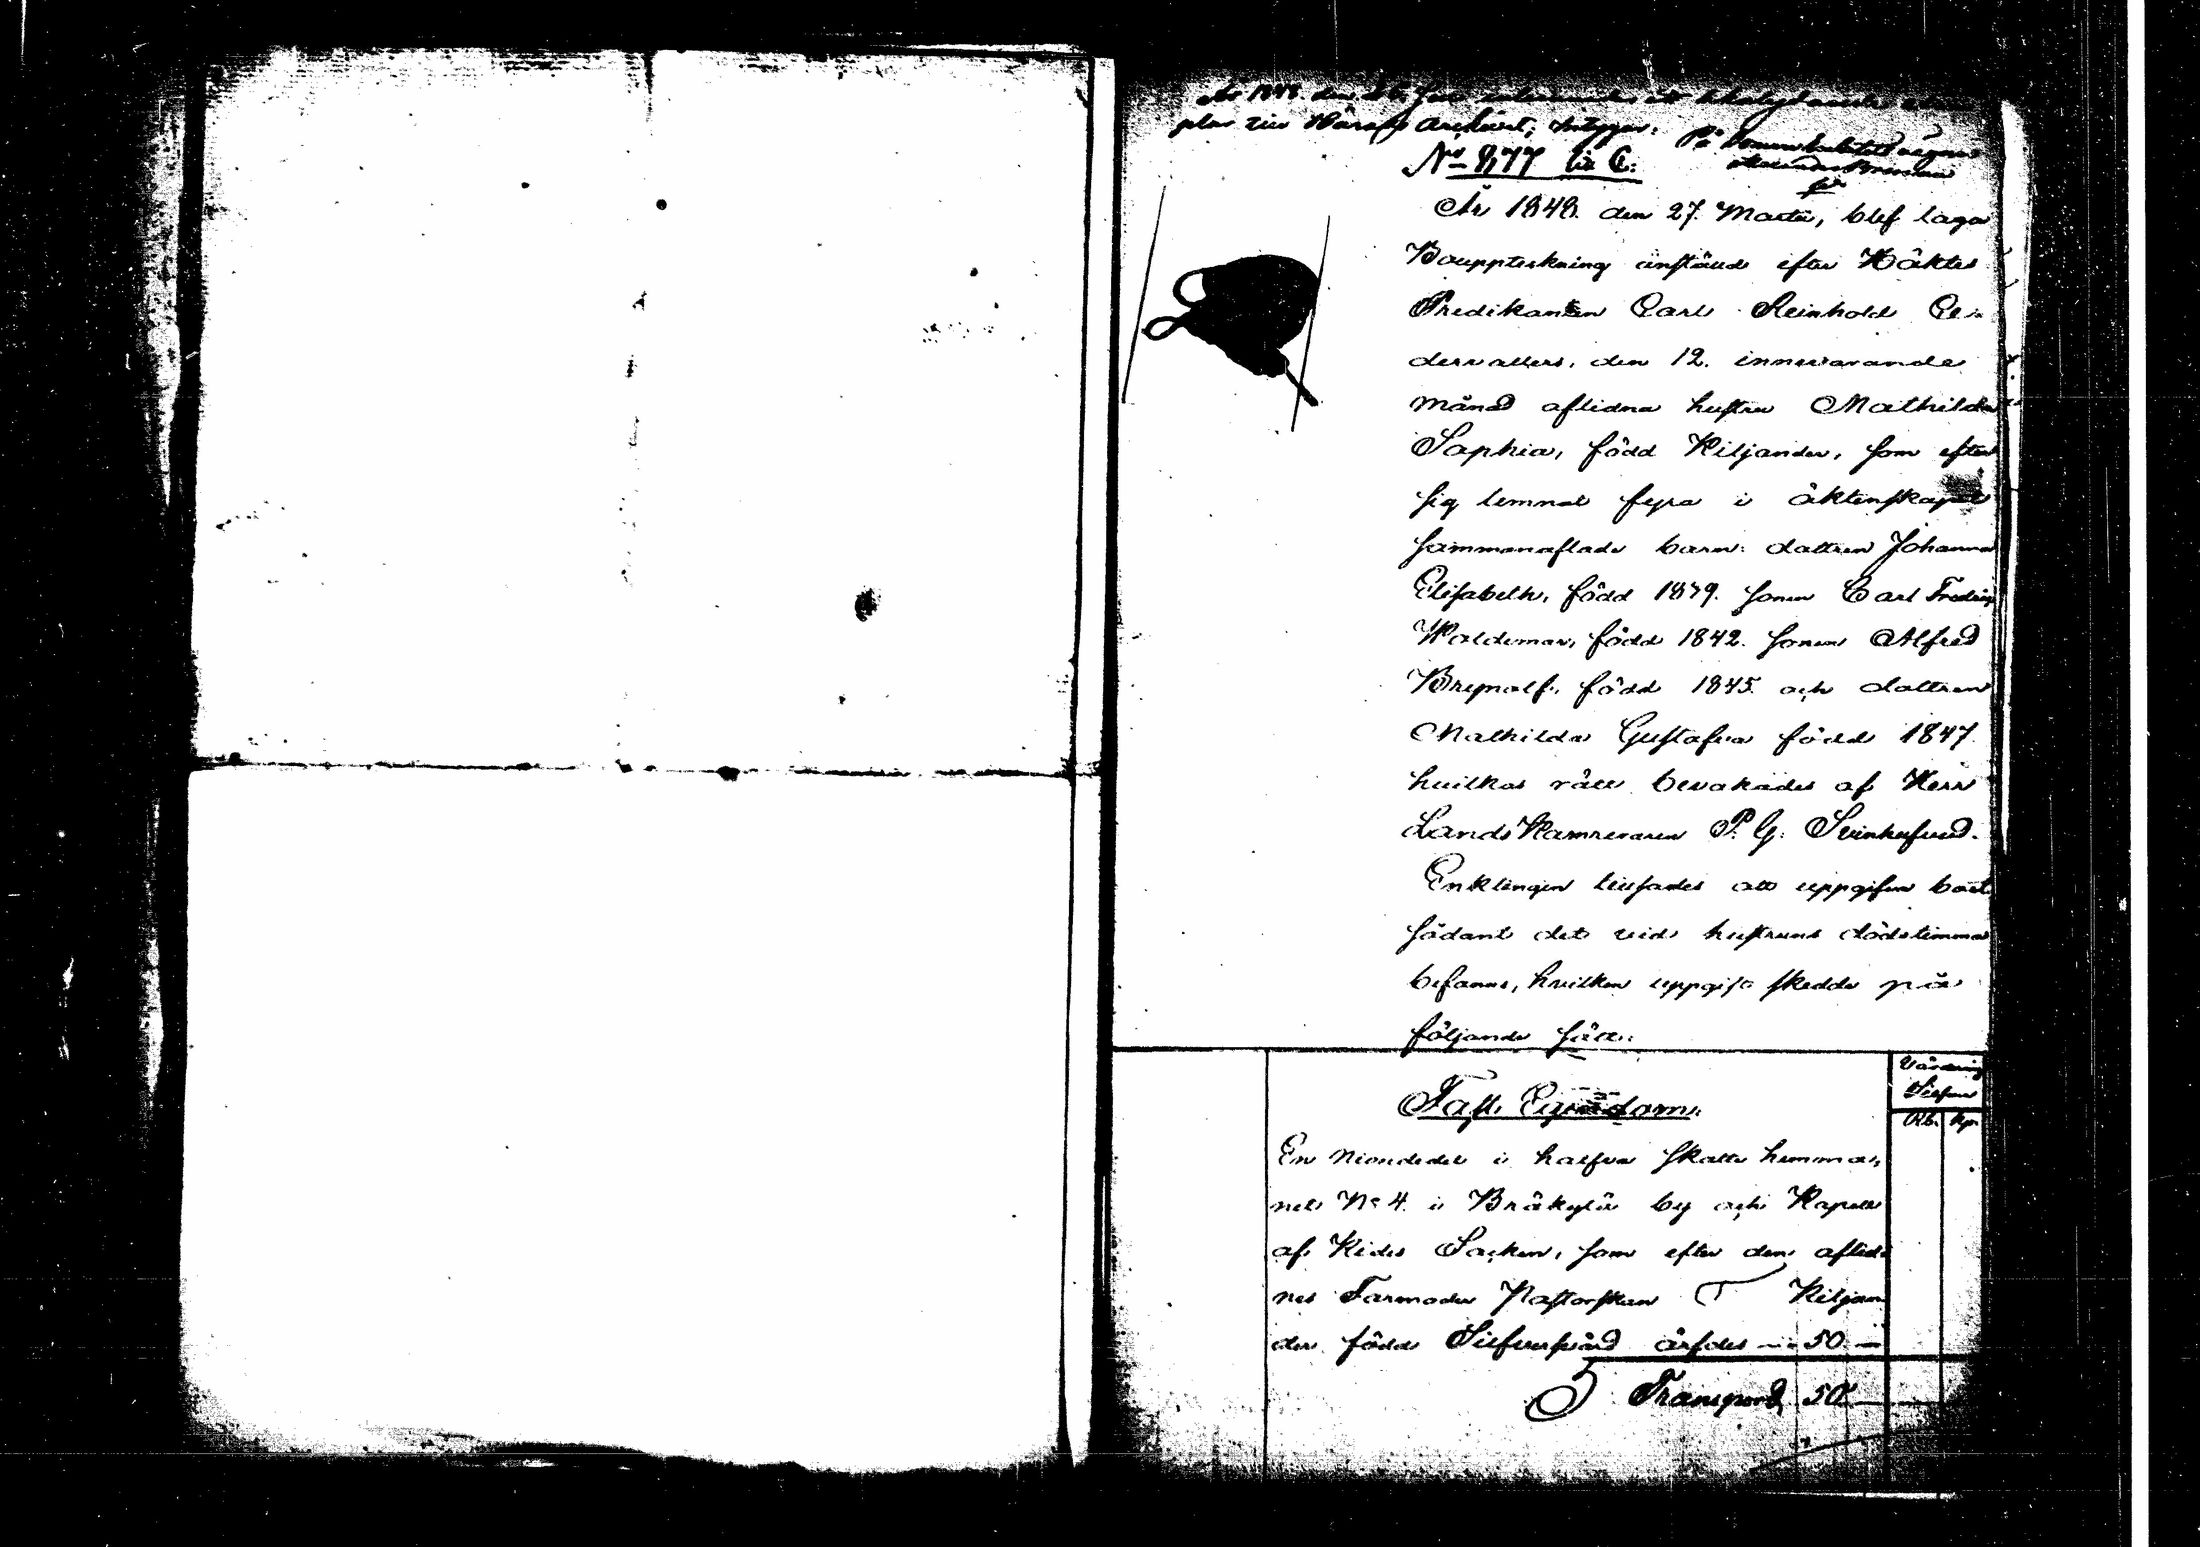 År 1848 den
plar till Härads Archivet; Intygar: På
No 877 Lit C.
År 1848. den 27. Martii, blef laga
Bouppteckning anstäld efter Häktes
Predikanten Carl Reinhold Ce-
dervallers, den 12. innevarande
månad aflidna hustru Mathilda
Sophia, född Kiljander, som efter
sig lemnat fyra i äktenskapet
sammanaflade barn: dottren Johanna
Elisabeth, född 1839. sonen Carl Fredrik
Waldemar, född 1842. sonen Alfred
Brynolf, född 1845. och dottren
Mathilda Gustafva född 1847
hvilkas rätt bevakades af Herr
LandsKamreraren P. G. Svinhufvud.
Enklingen tillsades att uppgifva boet
sådant det vid hustruns dödstimma
befanns, hvilken uppgift skedde på
följande sätt:
Värdering
Silfver
Fast Egendom.
Rb. Kp.
En niondedel i halfva skatte hemma-
net No 4. i Bräkylä by och Kapell
af Kides Socken, som efter den aflid-
nes Farmoder Pastorskan Kiljan
der född Silfversvärd ärfdes 50. —
Transport 50. —